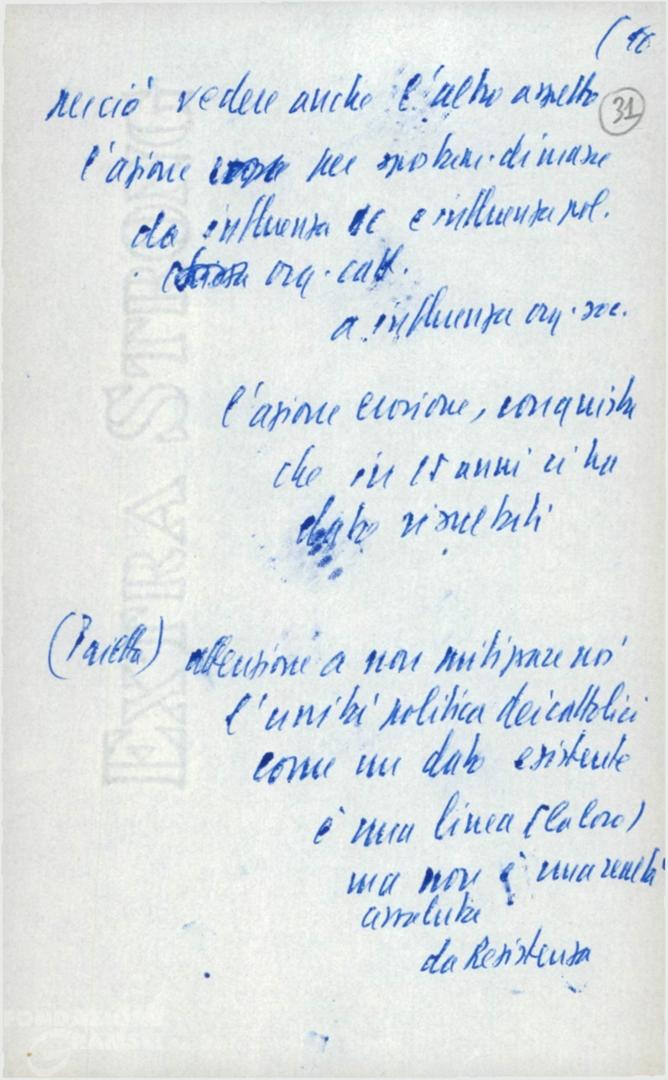 (16
31
perciò vedere anche l'altro aspetto
l'azione per spostare di masse
da influenza dc e influenza pol.
org. catt.
a influenza org. soc.
l'azione erosione, conquista
che in 15 anni ci ha
dato risultati
(Pajetta) attenzione a non mitizzare noi
l'unità politica dei cattolici
come un dato esistente
è una linea (la loro)
ma non è una realtà
assoluta
da Resistenza
EXTRA STRONG